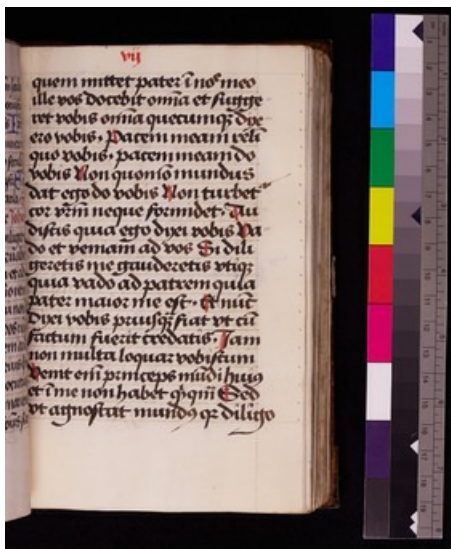 vij
quem mittet pater ī noīe meo
ille vos docebit om̄ia et sugge
ret vobis om̄ia quecumqꝫ dixe
ro vobis. Pacem meam reli
quo vobis. pacem meam do
vobis Non quomō mundus
dat ego do vobis Non turbet᷑
cor vr̄m neque formidet. Au
distis quia ego dixi vobis Va
do et veniam ad vos Si dili
geretis me gauderetis vtiqꝫ
quia vado ad patrem quia
pater maior me est. Et nūc
dixi vobis priusqꝫ fiat vt cū
factum fuerit credatis. Jam
non multa loquar vobiscum
Venit eni͞ princeps mūdi huiꝰ
et ī me non habet qͥcqͣm Sed
vt agnoscat mundꝰ qꝛ diligo